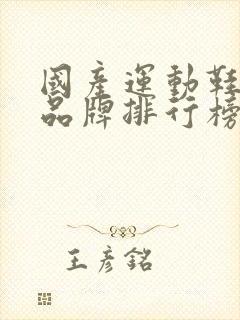 國產運動鞋
品牌排行榜
王彥銘